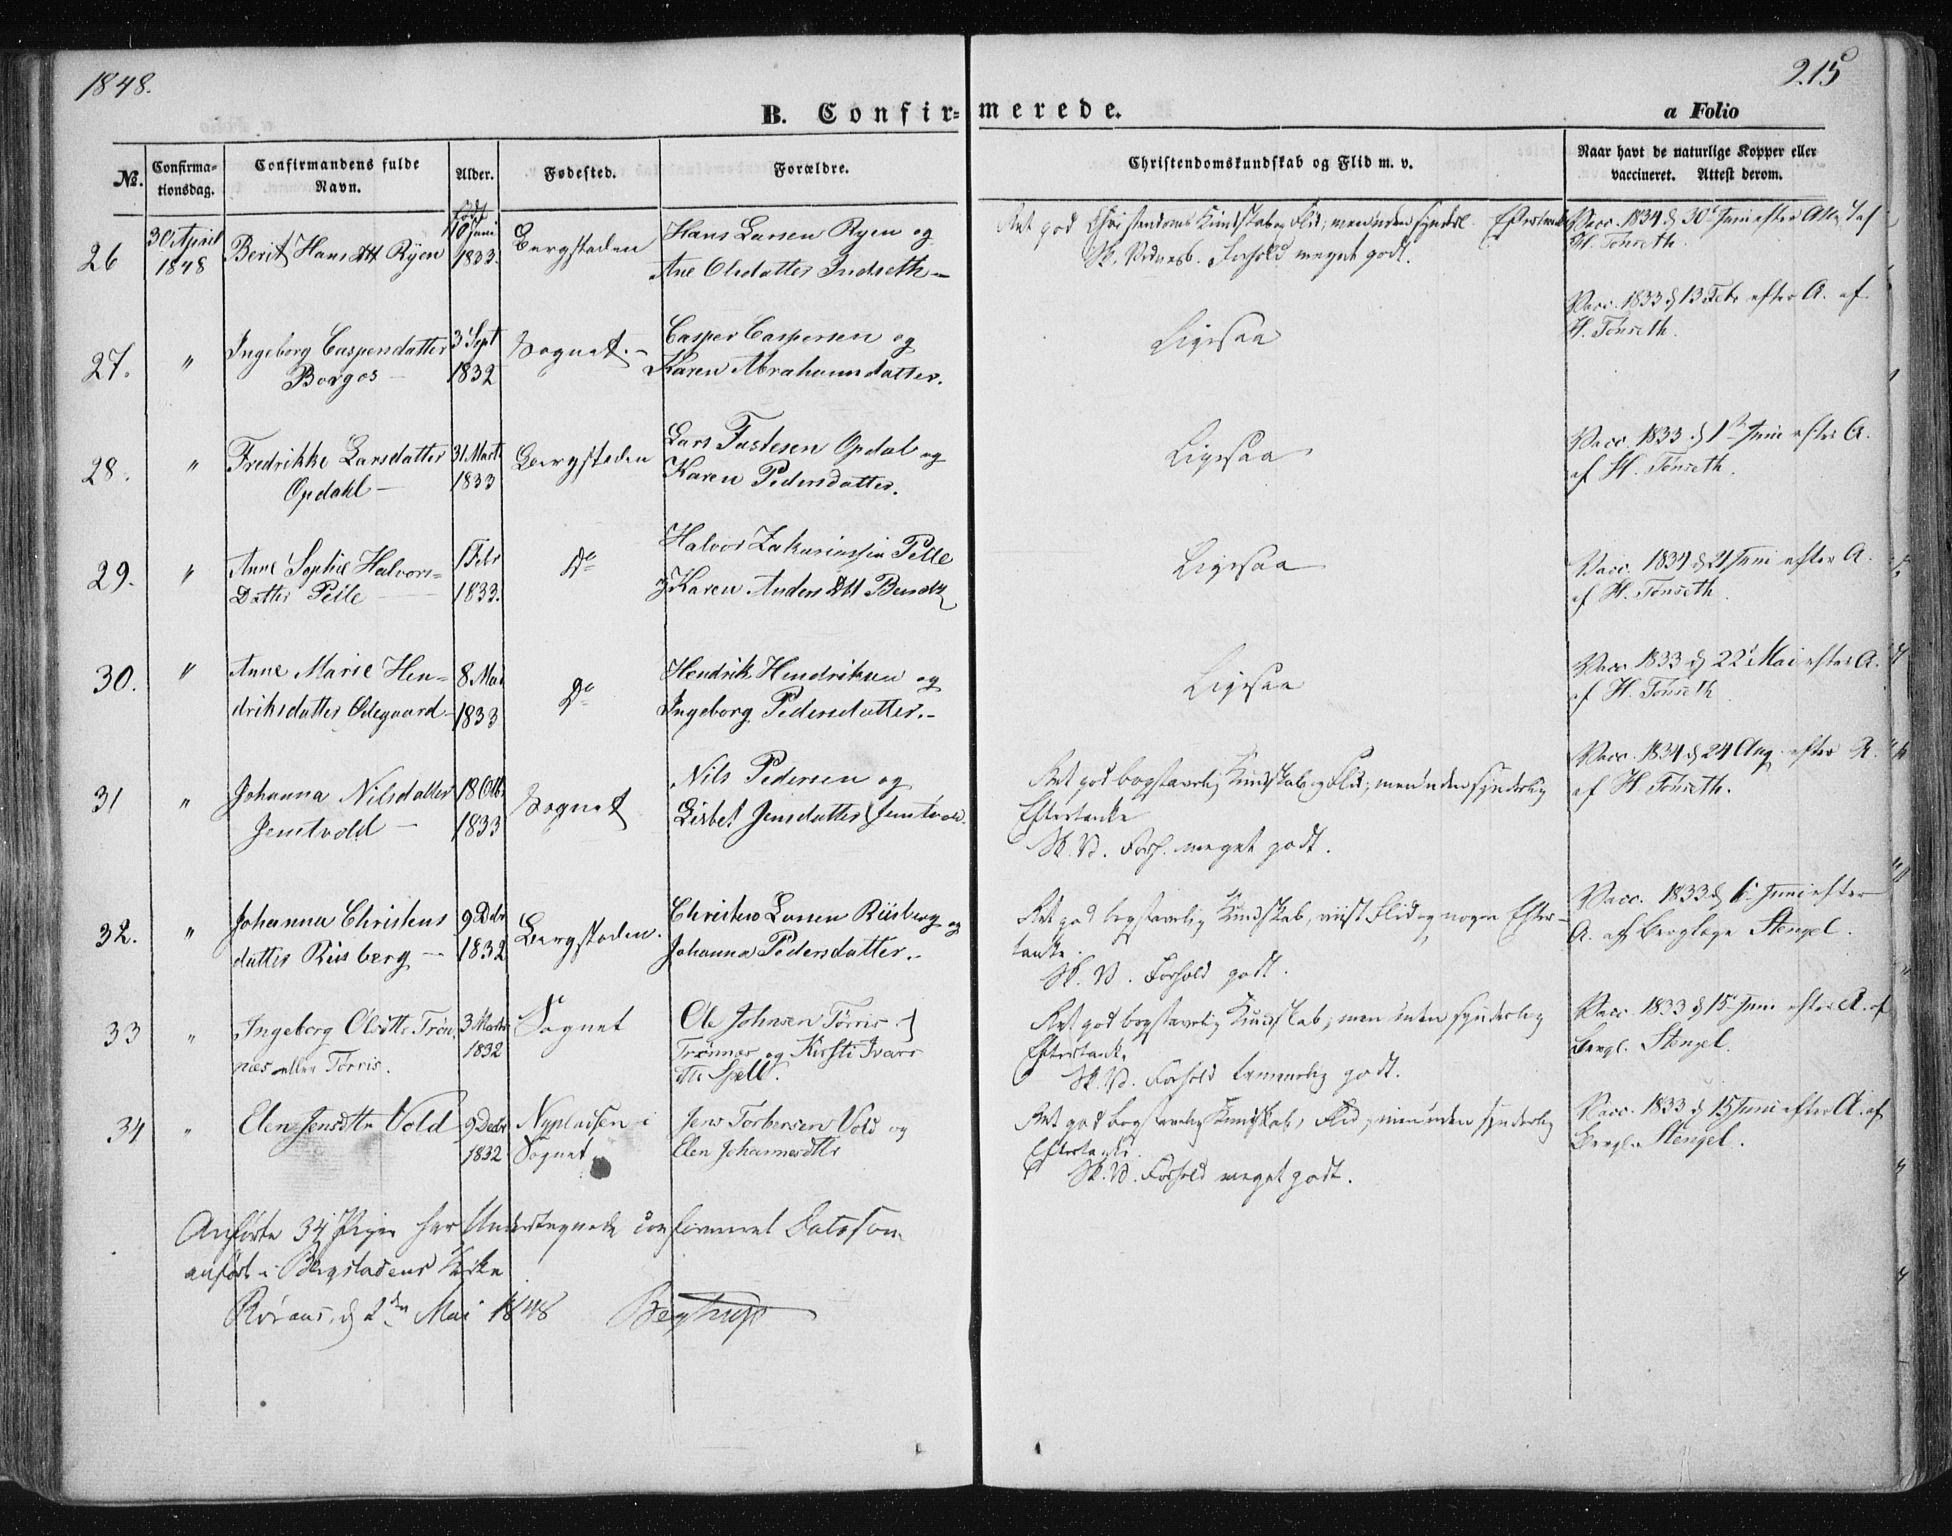 1848.
215
B. Confirmerede.
a Folio
No.
Confirmationsdag.
Confirmandens fulde Navn.
Alder.
Fødested.
Forældre.
Christendomskundskab og Flid m. v.
Naar havt de naturlige Kopper eller vaccineret. Attest derom.
26
30 April 1848
Berit Hansdtt Ryen
født 10 Juni 1833.
Bergstaden
Hans Larsen Ryen og
Ane Olsdatter Indseth –
Ret god Christendoms Kundskab og Flid; men uden synderl. Eftertanke
Sk. Vidnesb. Forhold meget godt.
Vacc. 1834 d 30 Juni efter Att. af
H. Tønseth.
27.
"
Ingeborg Caspersdatter
Borgos –
3 Sept 1832
Sognet. –
Casper Caspersen og
Karen Abrahamsdatter.
Ligesaa
Vacc. 1833 d 13 Febr efter A. af
H. Tønseth.
28.
"
Fredrikke Larsdatter
Opdahl –
31. Marts 1833
Bergstaden
Lars Fastesen Opdal og
Karen Pedersdatter.
Ligesaa
Vacc. 1833 d 1 Juni efter A.
af H. Tønseth.
29.
"
Anne Sophie Halvors-
Datter Peile –
1 Febr 1833.
Do
Halvor Zakariassen Peile
og Karen Anders Dtt
Ligesaa
Vacc. 1834 d 21 Juni efter A.
af H. Tønseth.
30.
"
Anne Marie Hen-
driksdatter Ødegaard. –
8. Mai 1833
Do
Hendrik Hendriksen og
Ingeborg Pedersdatter. –
Ligesaa
Vacc. 1833 d 22 Mai efter A.
af H. Tønseth
31
"
Johanna Nilsdatter
Jemtvold –
18 Octb. 1833
Sognet
Nils Pedersen og
Lisbet Jensdatter Jemtvold.
Ret god bogstavelig Kundskab og Flid; men uden synderlig
Eftertanke
Sk. V. Forh. meget godt.
Vacc. 1834 d 24 Aug. efter A.
af H. Tønseth.
32.
"
Johanna Christens
datter Riisberg –
9 Debr 1832
Bergstaden.
Christen Larsen Riisberg og
Johanna Pedersdatter. –
Ret god bogstavelig Kundskab, viist Flid og nogen Efter-
tanke.
Sk. V. Forhold godt.
Vacc. 1833 d 6 Juni efter
A. af Berglæge Stengel.
33
"
Ingeborg Olsdtter Trøn
næs eller Tørris.
3 Marts 1832
Sognet
Ole Johnsen Tørris
Trønnes og Kirsti Ivars
dtr Spell.
Ret god bogstavelig Kundskab; men uden synderlig
Eftertank.
Sk. V. Forhold temmelig godt.
Vacc. 1833 d 15 Juni efter A. af
Bergl. Stengel.
34
"
Elen Jensdttr Vold
9 Decbr 1832
Nypladsen i
Sognet
Jens Torbersen Vold og
Elen Johannesdttr
Ret god bogstavelig Kundskab, Flid; men uden synderlig
Eftertanke.
Sk. V. Forhold meget godt.
Vacc. 1833 d 15 Juni efter A. af
Bergl. Stengel.
Anførte 34 Piger har Undertegnede confirmeret Dato som
anført i Bergstadens Kirke
Røraas, d 2den Mai 1848
Bergtrup